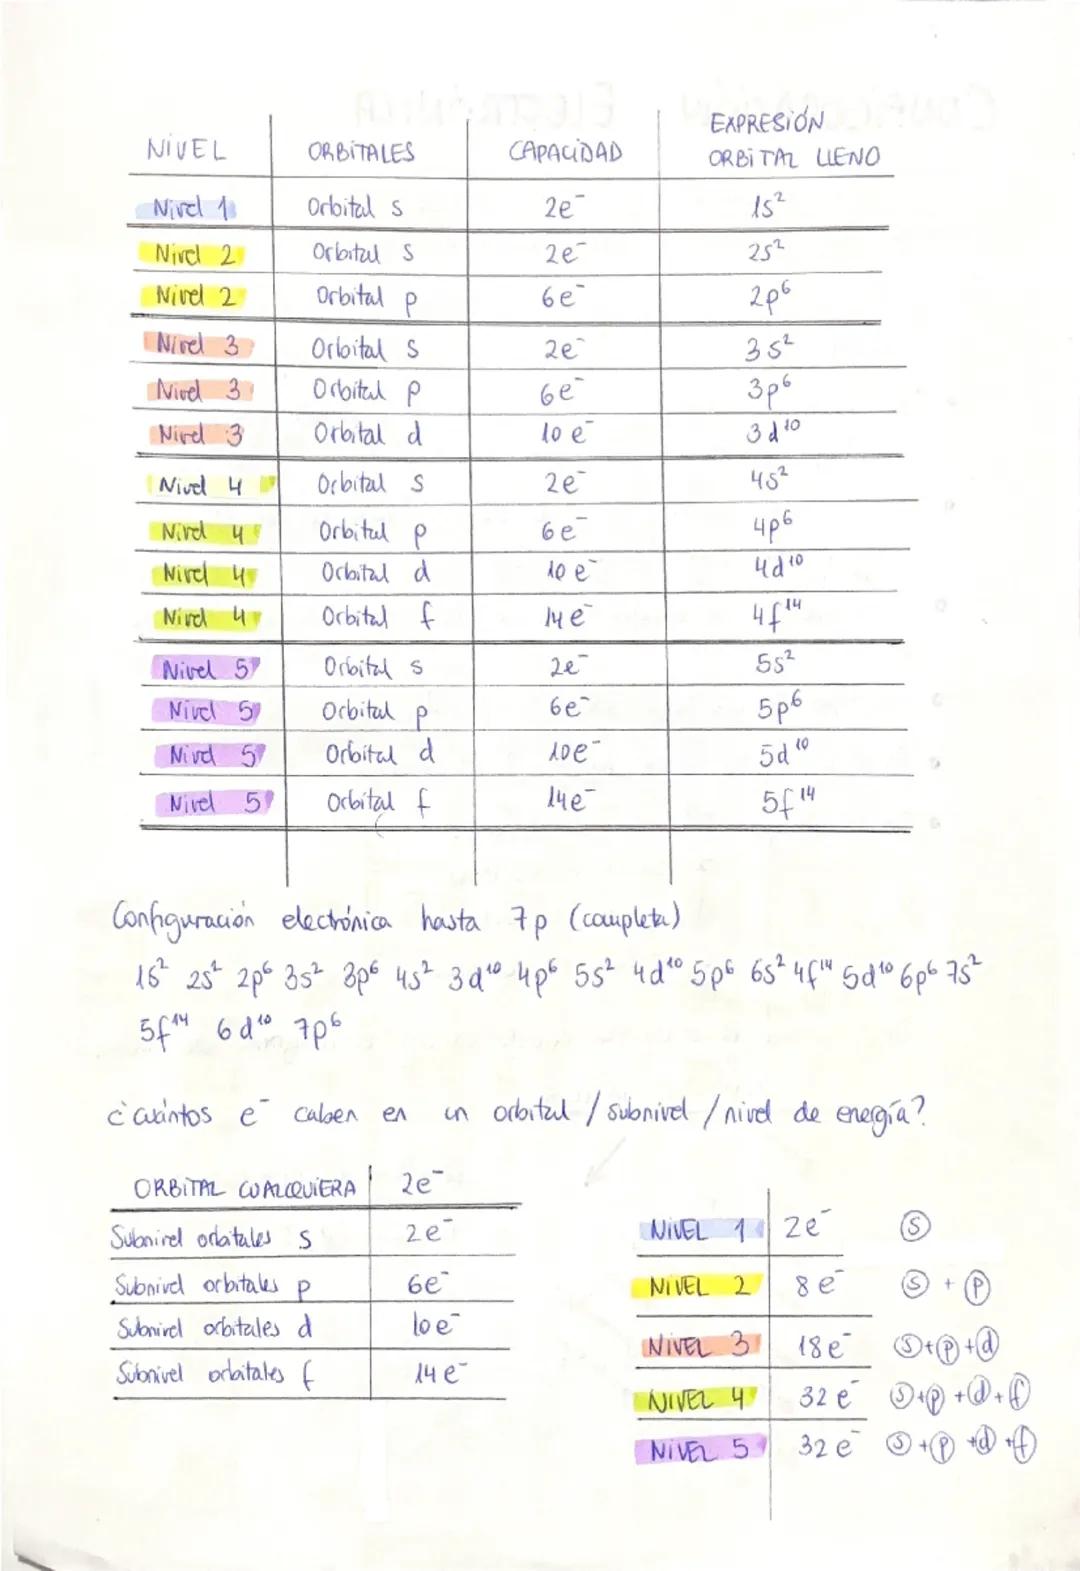 NIVEL ORBITALES CAPACIDAD EXPRESIÓN ORBITAL LLENO
Nivel 1 Orbital s 2e⁻ 1s²
Nivel 2 Orbital s 2e⁻ 2s²
Nivel 2 Orbital p 6e⁻ 2p⁶
Nivel 3 Orbital s 2e⁻ 3s²
Nivel 3 Orbital p 6e⁻ 3p⁶
Nivel 3 Orbital d 10e⁻ 3d¹⁰
Nivel 4 Orbital s 2e⁻ 4s²
Nivel 4 Orbital p 6e⁻ 4p⁶
Nivel 4 Orbital d 10e⁻ 4d¹⁰
Nivel 4 Orbital f 14e⁻ 4f¹⁴
Nivel 5 Orbital s 2e⁻ 5s²
Nivel 5 Orbital p 6e⁻ 5p⁶
Nivel 5 Orbital d 10e⁻ 5d¹⁰
Nivel 5 Orbital f 14e⁻ 5f¹⁴
Configuración electrónica hasta 7p (completa)
1s² 2s² 2p⁶ 3s² 3p⁶ 4s² 3d¹⁰ 4p⁶ 5s² 4d¹⁰ 5p⁶ 6s² 4f¹⁴ 5d¹⁰ 6p⁶ 7s²
5f¹⁴ 6d¹⁰ 7p⁶
¿cuántos e⁻ caben en un orbital / subnivel / nivel de energía?
ORBITAL CUALQUIERA 2e⁻
Subnivel orbitales s 2e⁻
Subnivel orbitales p 6e⁻
Subnivel orbitales d 10e⁻
Subnivel orbitales f 14e⁻
NIVEL 1 2e⁻ s
NIVEL 2 8e⁻ s + p
NIVEL 3 18e⁻ s + p + d
NIVEL 4 32e⁻ s + p + d + f
NIVEL 5 32e⁻ s + p + d + f